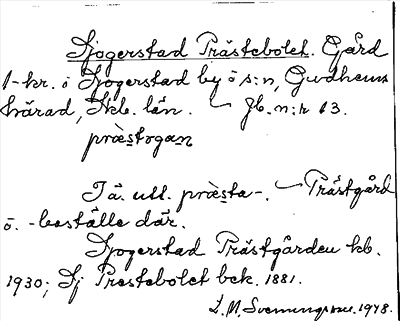 Sjogerstad Prästebolet. Gård
1-kr. i Sjogerstad by ö s:n, Gudhems
härad, Skb. län. – Jb. n:r 13.
præstrgan
I ä. utt. præsta-. – Prästgård
o. -boställe där.
Sjogerstad Prästgården kb.
1930; Sj Prestebolet bek. 1881.
L. M. Svenungsson. 1948.